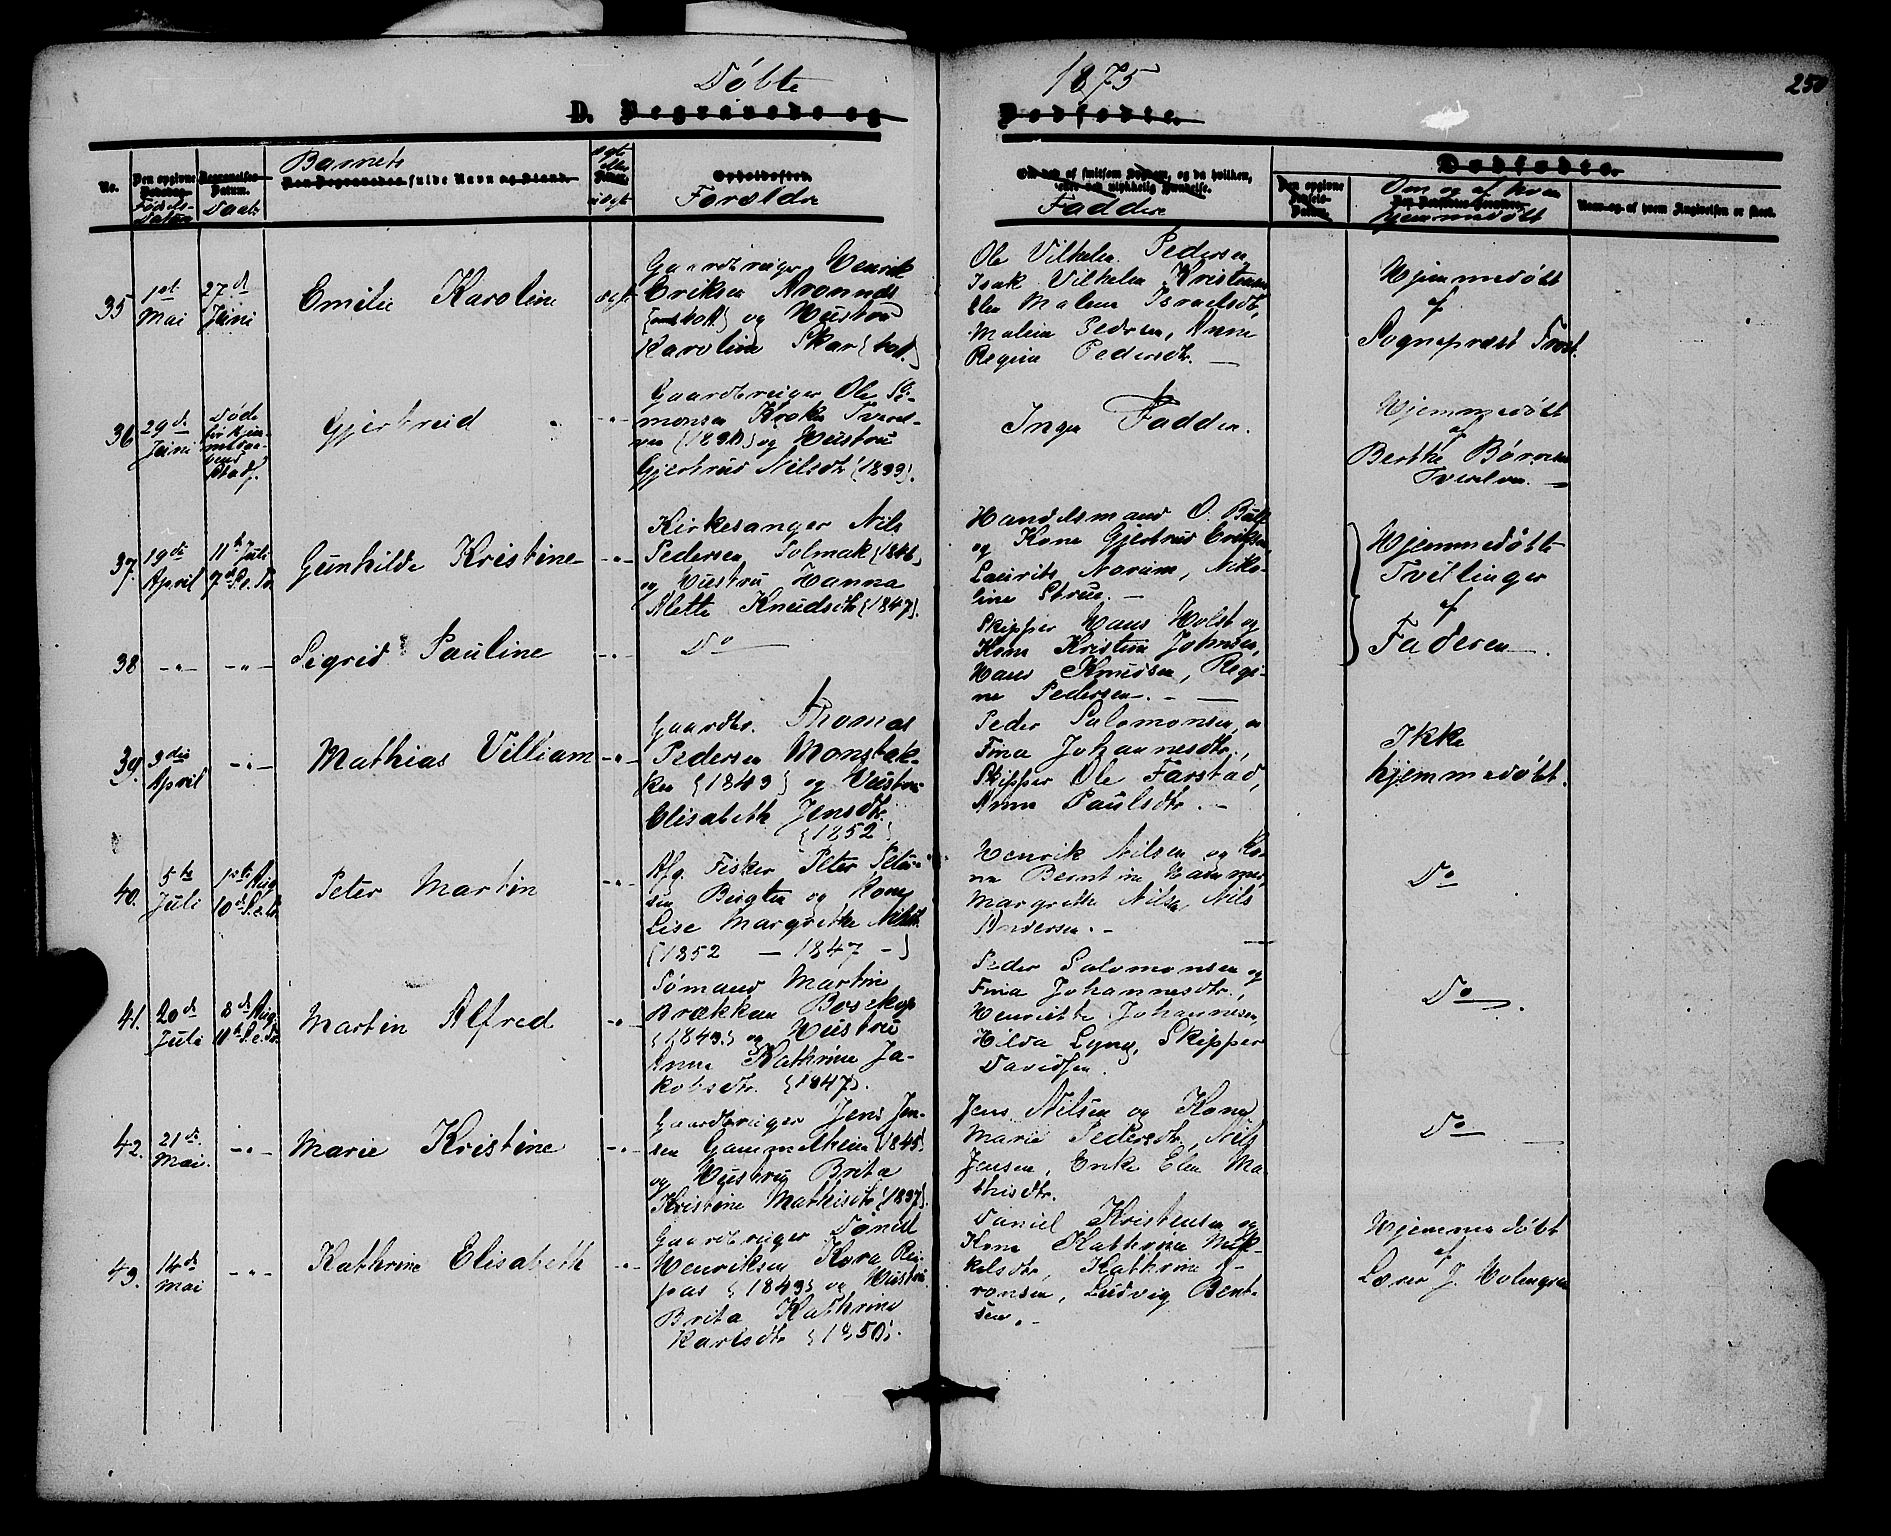 Døbte 1875
250
D. Begravede og Dødfødte.
No.
Den opgivne Fødsels-Datum
Begravelses-Datum. Daab
Barnets
Den Begravedes fulde Navn og Stand.
ægt eller uægt
Opholdssted.
Forældre
Fadder
Dødfødte.
Den opgivne Fødsels-Datum.
Om og af hvem hjemmedøbt
Naar og af hvem Angivelsen er skeet.
35
1ste Mai
27de Juni
Emilie Karoline
ægt
Gaardbruger Henrik
Eriksen
og Hustru
Karoline Skar
Ole Vilhelm Pedersen
Isak Vilhelm Kristensen
Elen Malene Israelsdtr,
Malene Pedersen, Anne
Regine Pedersdtr. —
Hjemmedøbt
af
Sognepræst
36
29de Juni
Døde
Gjertrud
-"-
Gaardbruger Ole Si-
monsen Tverel-
ven og Hustru
Gjertrud Nilsdtr
Ingen Faddere.
Hjemmedøbt
af
Berthe
Tverelven. —
37.
19de April
11te Juli
7de S. e. Tr.
Gunhilde Kristine
-"-
Kirkesanger Nils
Pedersen Solmak {1846}
og Hustru Hanna
Alette Knudsdtr {1847}.
Handelsmand O. Bull
og Kone Gjertrud Eriksen,
Laurits Norum, Niko-
line Strue. —
Hjemmedøbte
Tvillinger
af
Faderen.
38
-"-
-"-
Sigrid Pauline
-"-
Do
Skipper Hans Holst og
Kone Kristine Johnsen,
Hans Knudsen, Regi-
ne Pedersen. —
39.
3die April
-"-
Mathias Villiam
-"-
Gaardbr. Thomas
Pedersen Monsbak-
ken {1849} og Hustru
Elisabeth Jensdtr.
{1852}
Peder Salomonsen og
Fina Johannesdtr.,
Skipper Ole Farstad,
Anne Paulsdtr. —
Ikke
hjemmedøbt.
40.
5te Juli
1ste Aug.
10de S. e. Tr.
Peter Martin
-"-
Afg. Fisker Peter Peter-
sen og Kone
Lise Margrethe
{1852 — 1847 —}
Henrik Nilsen og Ko-
ne Berntine Hammer,
Margrethe Nilsen, Nils
Andersen. —
Do
41.
20de Juli
8de Aug.
11te S. e. Tr.
Martin Alfred
-"-
Sømand Martin
Brækkan Bosekop
{1849} og Hustru
Anne Kathrine Ja-
kobsdtr. {1847}.
Peder Salomonsen og
Fina Johannesdtr.,
Henriette Johannesen,
Hilda Lyng, Skipper
Davidsen.
Do.
42.
21de Mai.
-"-
Marie Kristine
-"-
Gaardbruger Jens Jen-
sen Gammelheim {1845}
og Hustru Brita
Kristine Mathisdtr {1837}.
Jens Nilsen og Kone
Marie Pedersdtr, Nils
Jensen, Enke Elen Ma-
thisdtr.
Do
43.
14de Mai
-"-
Kathrine Elisabeth
-"-
Gaardbruger Daniel
Henriksen Kora Rai-
pas {1849} og Hustru
Brita Kathrine
Karlsdtr {1850}.
Daniel Kristensen og
Kone Kathrine Mik-
kelsdtr, Kathrine A-
ronsen, Ludvig Bent-
sen. —
Hjemmedøbt
af
Lærer J. Holmgren